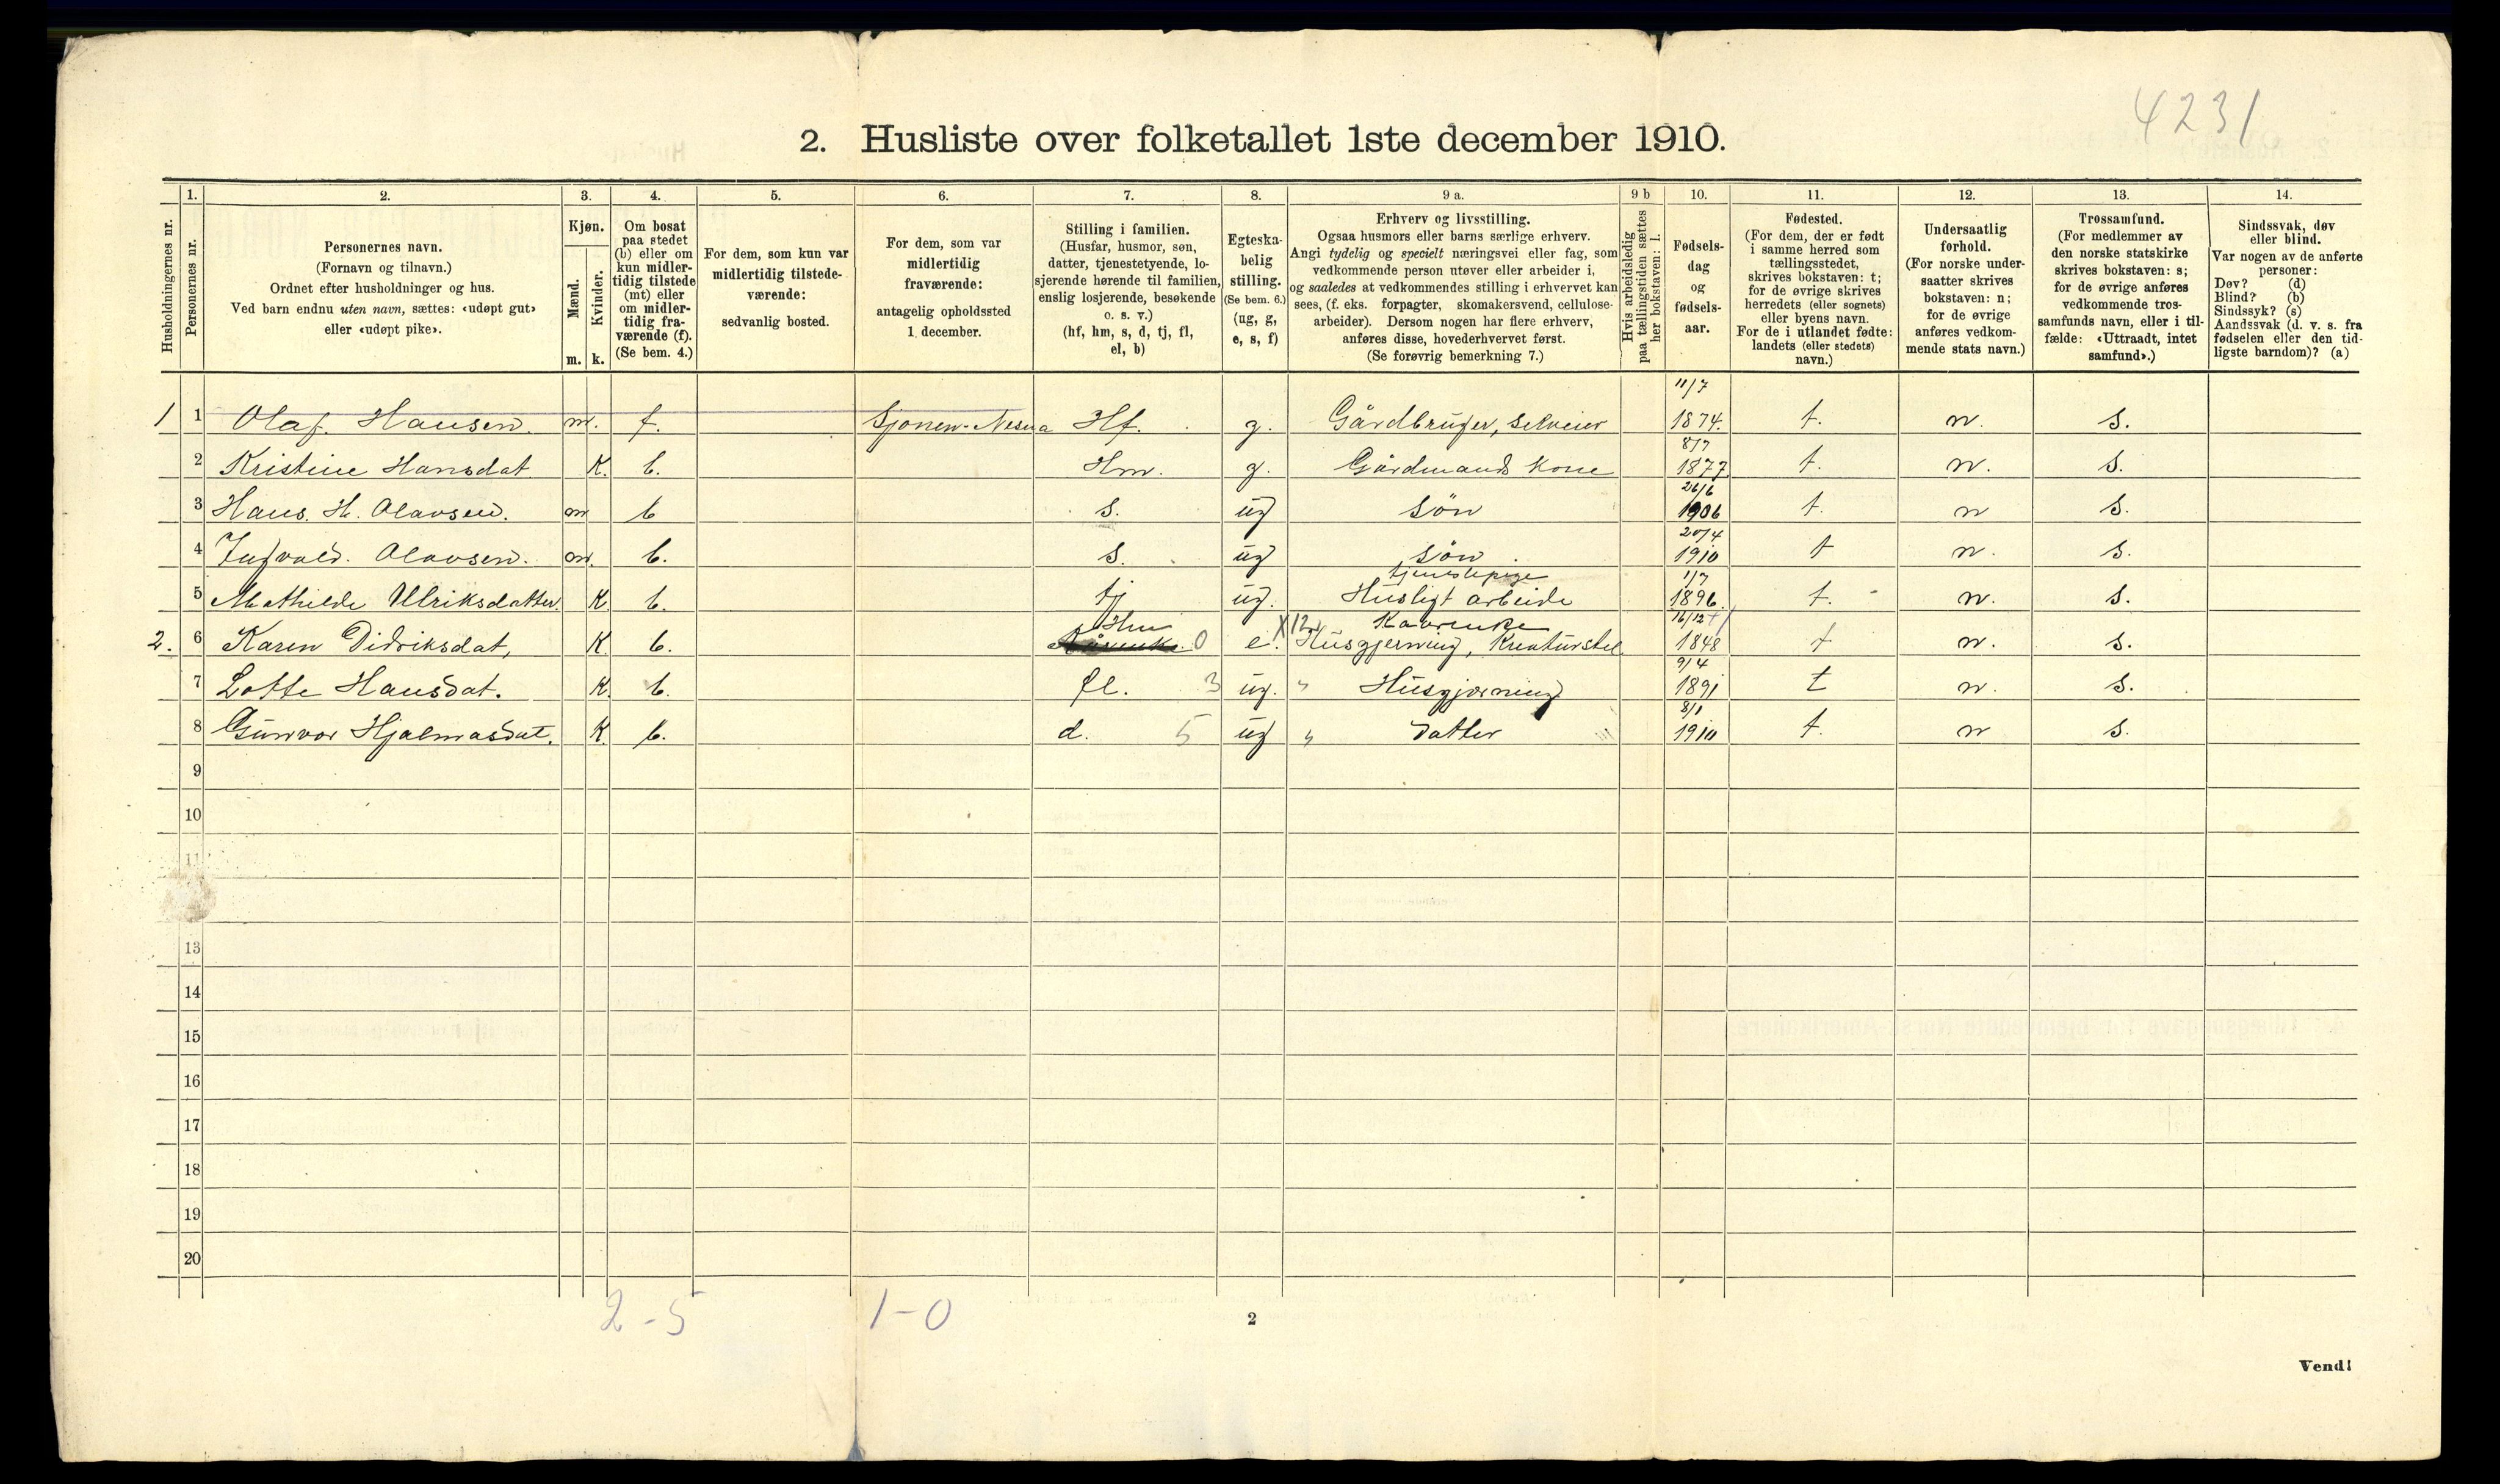 4231
2. Husliste over folketallet 1ste december 1910.
Husholdningernes nr.
1.
Personernes nr.
2.
Personernes navn.
(Fornavn og tilnavn.)
Ordnet efter husholdninger og hus.
Ved barn endnu uten navn, sættes: «udøpt gut»
eller «udøpt pike».
3.
Kjøn.
Mænd.
m.
Kvinder.
k.
4.
Om bosat
paa stedet
(b) eller om
kun midler-
tidig tilstede
(mt) eller
om midler-
tidig fra-
værende (f).
(Se bem. 4.)
5.
For dem, som kun var
midlertidig tilstede-
værende:
sedvanlig bosted.
6.
For dem, som var
midlertidig
fraværende:
antagelig opholdssted
1 december.
7.
Stilling i familien.
(Husfar, husmor, søn,
datter, tjenestetyende, lo-
sjerende hørende til familien,
enslig losjerende, besøkende
o. s. v.)
(hf, hm, s, d, tj, fl,
el, b)
8.
Egteska-
belig
stilling.
(Se bem. 6.)
(ug, g,
e, s, f)
9 a.
Erhverv og livsstilling.
Ogsaa husmors eller barns særlige erhverv.
Angi tydelig og specielt næringsvei eller fag, som
vedkommende person utøver eller arbeider i,
og saaledes at vedkommendes stilling i erhvervet kan
sees, (f. eks. forpagter, skomakersvend, cellulose-
arbeider). Dersom nogen har flere erhverv,
anføres disse, hovederhvervet først.
(Se forøvrig bemerkning 7.)
9 b
Hvis arbeidsledig
paa tællingstiden sættes
her bokstaven: l.
10.
Fødsels-
dag
og
fødsels-
aar.
11.
Fødested.
(For dem, der er født
i samme herred som
tællingsstedet,
skrives bokstaven: t;
for de øvrige skrives
herredets (eller sognets)
eller byens navn.
For de i utlandet fødte:
landets (eller stedets)
navn.)
12.
Undersaatlig
forhold.
(For norske under-
saatter skrives
bokstaven: n;
for de øvrige
anføres vedkom-
mende stats navn.)
13.
Trossamfund.
(For medlemmer av
den norske statskirke
skrives bokstaven: s;
for de øvrige anføres
vedkommende tros-
samfunds navn, eller i til-
fælde: «Uttraadt, intet
samfund».)
14.
Sindssvak, døv
eller blind.
Var nogen av de anførte
personer:
Døv? (d)
Blind? (b)
Sindssyk? (s)
Aandssvak (d. v. s. fra
fødselen eller den tid-
ligste barndom)? (a)
1 1 Olaf Hansen. m. f. Sjonen-Nesna Hf. g. Gårdbruger, selveier 11/7 1874. t. n. s.
2 Kristine Hansdat K. b. Hm. g. Gårdmands Kone 8/7 1877 t. n. s.
3 Hans. H. Olavsen. m b s. ug søn 26/6 1906 t. n s.
4 Ingvald. Olavsen. m. b. s. ug søn 20/4 1910 t n. s.
5 Mathilde Ulriksdatter. K b. tj ug. tjenstepige Husligt arbeide 1/7 1896. t. n. s.
2. 6 Karen Didriksdat, K. b. Hm 0 e. X12 Kårenke Husgjerning, Kreaturstel 16/12 1848 t n. s.
7 Lotte Hansdat. K. b. fl. 3 ug. " Husgjerning 9/4 1891 t n. s.
8 Gunvor Hjalmasdat. K. b. d. 5 ug " datter 8/1 1910 t. n s.
9
10
11
13
14
15
16
17
18
19
20
2-5 1-0
2
Vend!